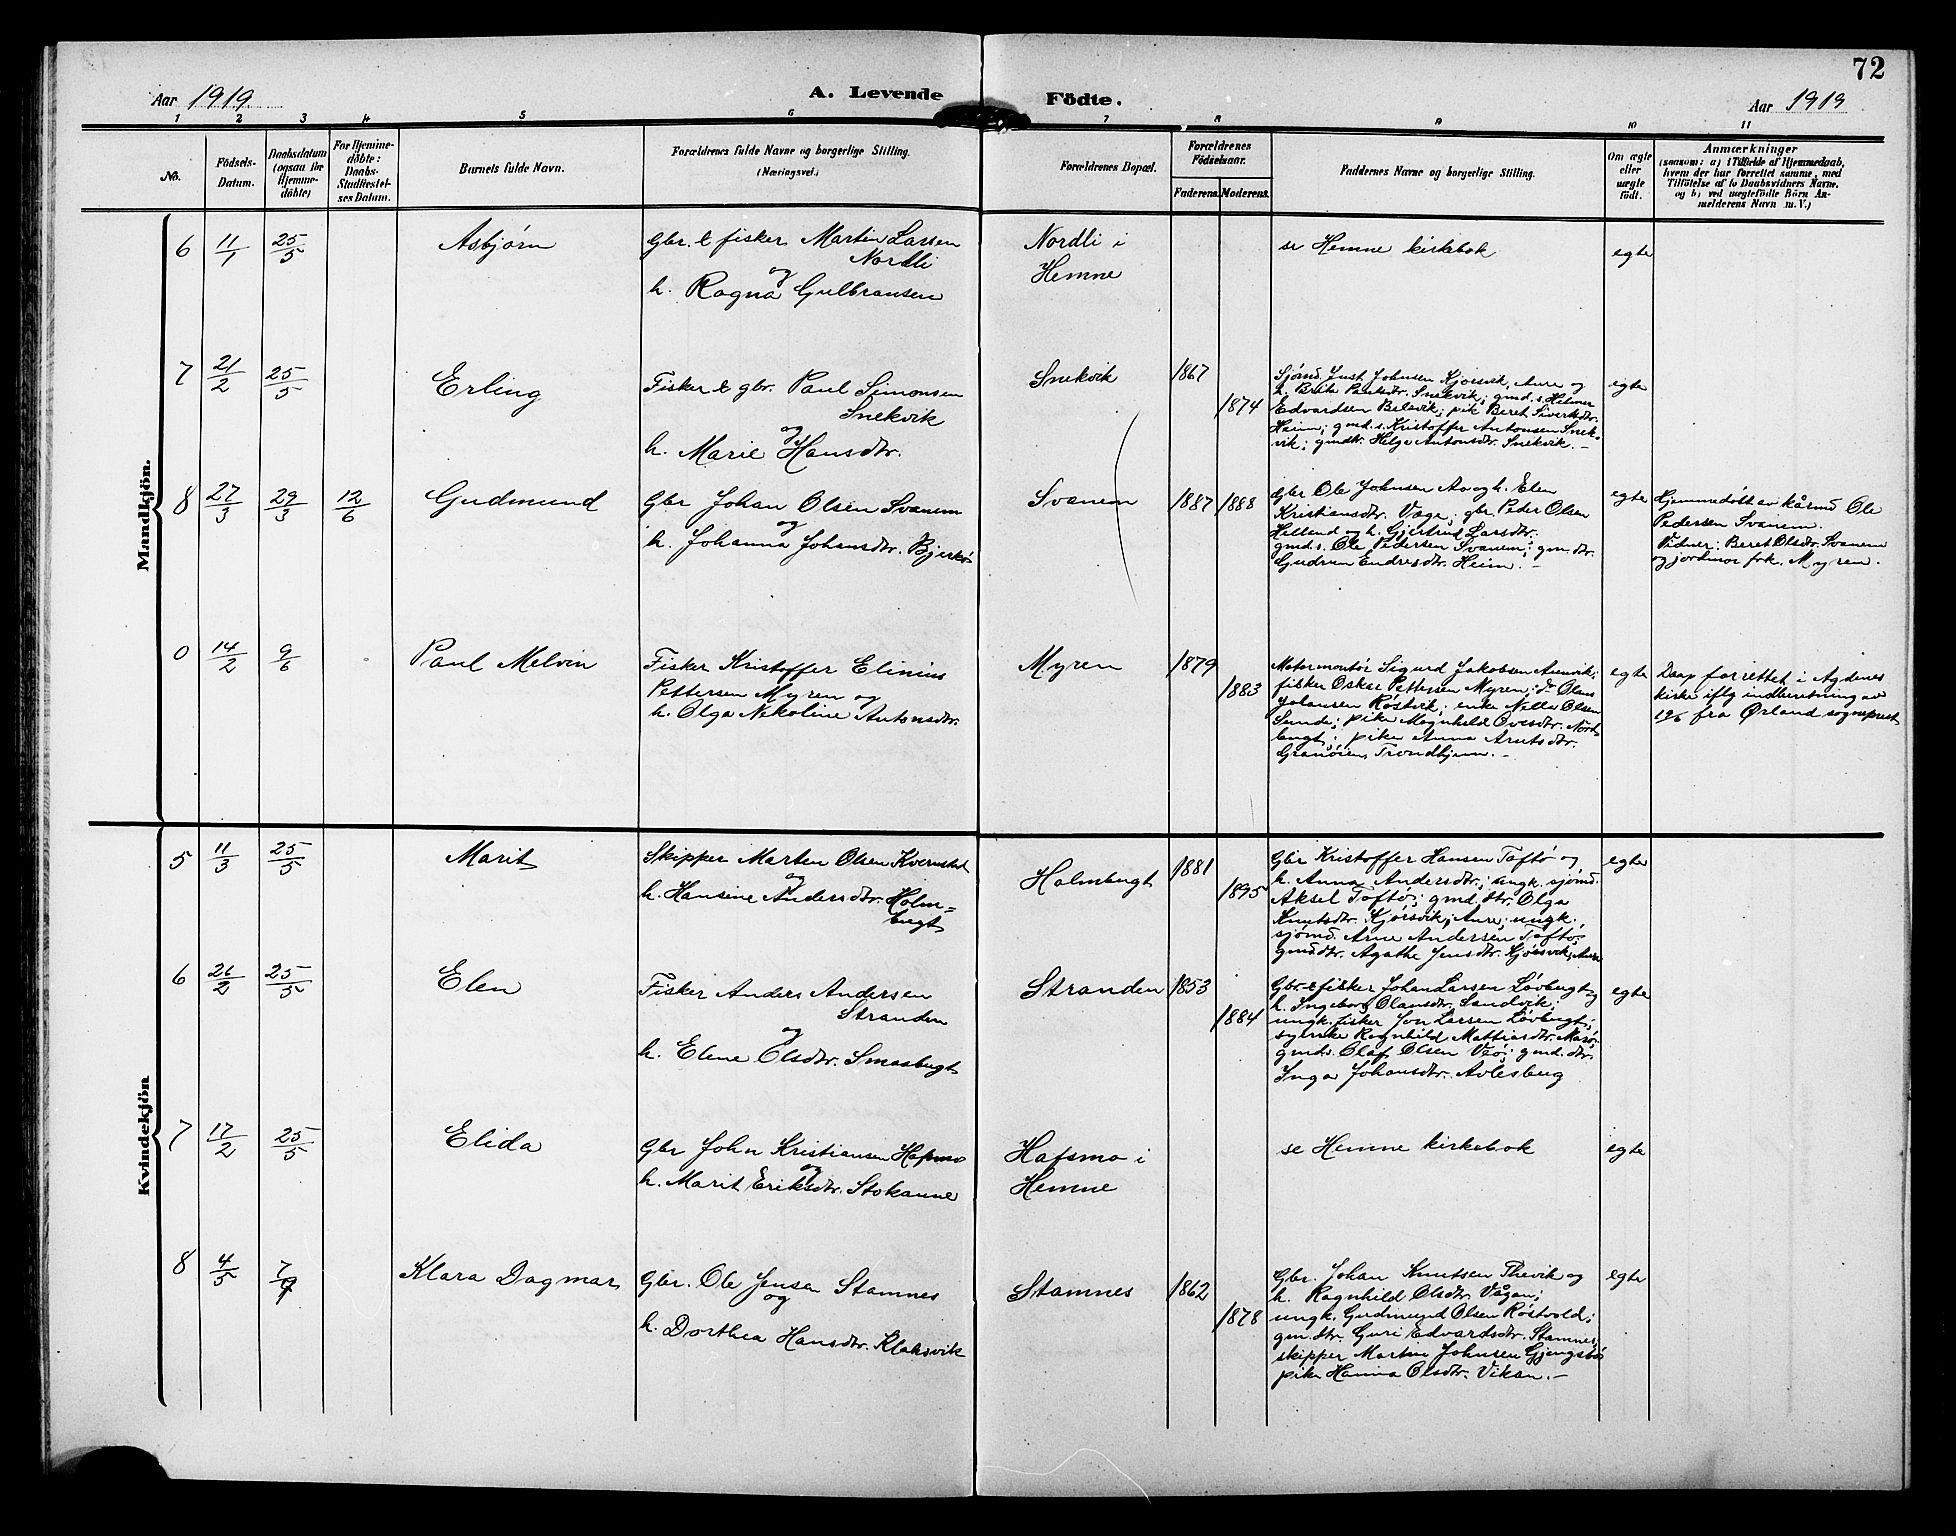 72
Aar 1919
A. Levende Födte.
Aar 1919
1 2 3 4 5 6 7 8 9 10 11
No.
Födsels-
Datum.
Daabsdatum
(ogsaa for
Hjemme-
döbte)
For Hjemme-
döbte:
Daabs-
Stadfæstel-
ses Datum.
Barnets fulde Navn.
Forældrenes fulde Navne og borgerlige Stilling.
(Næringsvei.)
Forældrenes Bopæl.
Forældrenes
Födselsaar.
Faderens.
Moderens.
Faddernes Navne og borgerlige Stilling.
Om ægte
eller
uægte
födt.
Anmærkninger
(saasom: a) i Tilfælde af Hjemmedaab,
hvem der har forrettet samme, med
Tilföielse af to Daabsvidners Navne,
og b) ved uægtefödte Börn An-
melderens Navn m. V.)
Mandkjön.
6 11/1 25/5 Asbjørn
Gbr. & fisker Martin Larsen
Nordli
og
h. Ragna Gulbransen
Nordli i
Hemne
se Hemne kirkebok
egte
7 21/2 25/5 Erling
Fisker & gbr. Paul Simonsen
Snekvik
og
h. Marie Hansdtr.
Snekvik
1867
1874
Sjømd. Just Johnsen Kjørsvik, Aure og
h. Brite Paulsdtr. Snekvik; gmd.s. Helmer
Edvardsen Belsvik; pik. Beret Sivertsdtr.
Heim; gmd.s. Kristoffer Antonsen Snek-
vik; gmdtr. Helga Antonsdtr. Snekvik.–
egte
8 27/3 29/3 12/6 Gudmund
Gbr Johan Olsen Svanem
og
h. Johanna Johansdtr. Bjerkø
Svanem
1887 1888
Gbr Ole Johnsen Aa og h. Elen
Kristiansdtr. Vaage; gbr. Peder Olsen
Helland og h. Gjertrud Larsdtr.
gmd.s. Ole Pedersen Svanem; gm.dtr.
Gudrun Endresdtr. Heim.–
egte
Hjemmedøbt av kårmd Ole
Pedersen Svanem.
Vidner: Beret Olsdtr. Svanem
og jordmor frk. Myren.
0 14/2 9/6 Paul Melvin
Fisker Kristoffer Elinius
Pettersen Myren og
h. Olga Nekoline Antonsdtr.
Myren
1879
1883
Motormontør Sigurd Jakobsen
fisker Oskar Pettersen Myren; do Olaus
Johansen Røstvik; enke Nella Olsen
Sunde; pike Magnhild Ovesdtr. Nord-
bugt; pike Anna Arntsdtr.
Granøien, Trondhjem.–
egte
Daap forrettet i Agdenes
kirke iflg indberetning av
19/6 fra Ørland sogneprest
Kvindekjön
5 11/3 25/5 Marit
Skipper Marten Olsen Kvernstad
og
h. Hansine Andersdtr. Holm-
bugt
Holmbugt
1881
1895
Gbr Kristoffer Hansen Taftø og
h. Anna Andersdtr.; ungk. sjømd.
Aksel Taftø; gmd.dtr. Olga
Knutsdtr. Kjørsvik, Aure; ungk.
sjømd. Arne Andersen Taftø;
gmd.dtr. Agathe Jensdtr. Kjørsvik, Aure
egte
6 26/2 25/5 Elen
Fisker Anders Andersen
Stranden
og
h. Elene Olsdtr. Smaabugt
Stranden
1853
1884
Gbr & fisker Johan Larsen Løvbugt og
h. Ingeborg Olausdtr. Sandvik;
ungk. fisker Jon Larsen Løvbugt;
Ragnhild Mattiasdtr.
gmd.s. Olaf Olsen Veø; gmd.dtr.
Inga Johansdtr. Avlesbug
egte
7 17/2 25/5 Elida
Gbr John Kristiansen Hafsmo
og
h. Marit Eriksdtr. Stokanne
Hafsmo i
Hemne
se Hemne kirkebok
egte
8 4/5 7/9 Klara Dagmar
Gbr. Ole Jensen Stamnes
og
h. Dorthea Hansdtr. Klaksvik
Stamnes
1862
1878
Gbr. Johan Knutsen Thevik og
h. Ragnhild Olsdtr. Vågan;
ungk. Gudmund Olsen Røstvold;
gm.dtr. Guri Edvardsdtr. Stamnes;
skipper Martin Johnsen Gjengstø
pike Hanna Olsdtr. Vikan.–
egte